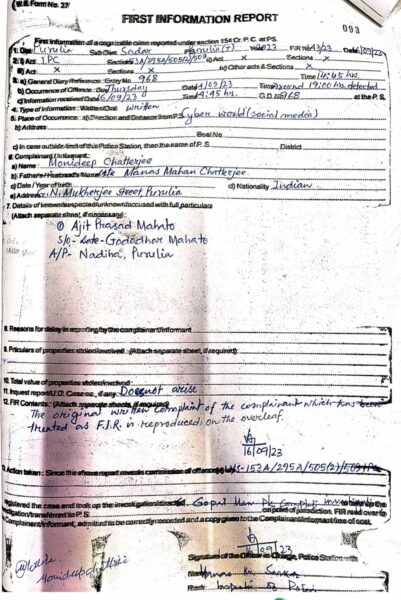 W.B. Form No. 27
FIRST INFORMATION REPORT
093
First Information of a cognizable crime reported under section 154 Cr. P. C. at P.S.
1. Dist. Purulia Sub Divn. Sadar Purulia (T) 2023 FIR No. 143/23 Date 16/09/23
2. i) Act IPC Sections 153A/295A/505(2)/509 Act X Sections X
iii) Act X Sections X Other acts & Sections X
3. a) General Diary Reference: Entry No. 968 Time 14:45 hrs.
b) Occurrence of Offence: Day Thursday Date 14/09/23 Time Around 19:00 hrs. detected
c) Information received Date 16/09/23 Time 14:45 hrs. G.D. No. 968 at the P.S.
4. Type of Information: Written written
5. Place of Occurrence: a) Direction and Distance from P.S. Cyber world (social media)
b) Address
Beat No.
c) In case outside limit of this Police Station, then the name of P.S. District
6. Complainant / Informant:
a) Name: Monideep Chatterjee
b) Father's / Husband's Name Late Manas Mohan Chatterjee
c) Date / Year of birth d) Nationality Indian
e) Address G.N. Mukherjee Street, Purulia
7. Details of known/suspected/unknown/accused with full particulars
(Attach separate sheet, if necessary)
① Ajit Prasad Mahato
S/o- Late- Gadadhar Mahato
A/P- Nadiha, Purulia
8. Reasons for delay in reporting by the complainant/informant
9. Particulars of properties stolen/involved (Attach separate sheet, if required)
10. Total value of properties stolen/involved
11. Inquest report/U.D. Case no., if any Does not arise
12. FIR Contents: (Attach separate sheets, if required)
The original written complaint of the complainant which has been
treated as F.I.R. is reproduced on the overleaf.
16/09/23
13. Action taken: Since the above report reveals commission of offence(s) U/S-153A/295A/505(2)/509 IPC
registered the case and took up the investigation
transferred to P.S. on point of jurisdiction. FIR read over to
Complainant/Informant, admitted to be correctly recorded and a copy given to the Complainant/Informant free of cost.
16/09/23
Signature of the Officer in Charge, Police Station with
Name
Rank Inspector of Police
Monideep Chatterjee